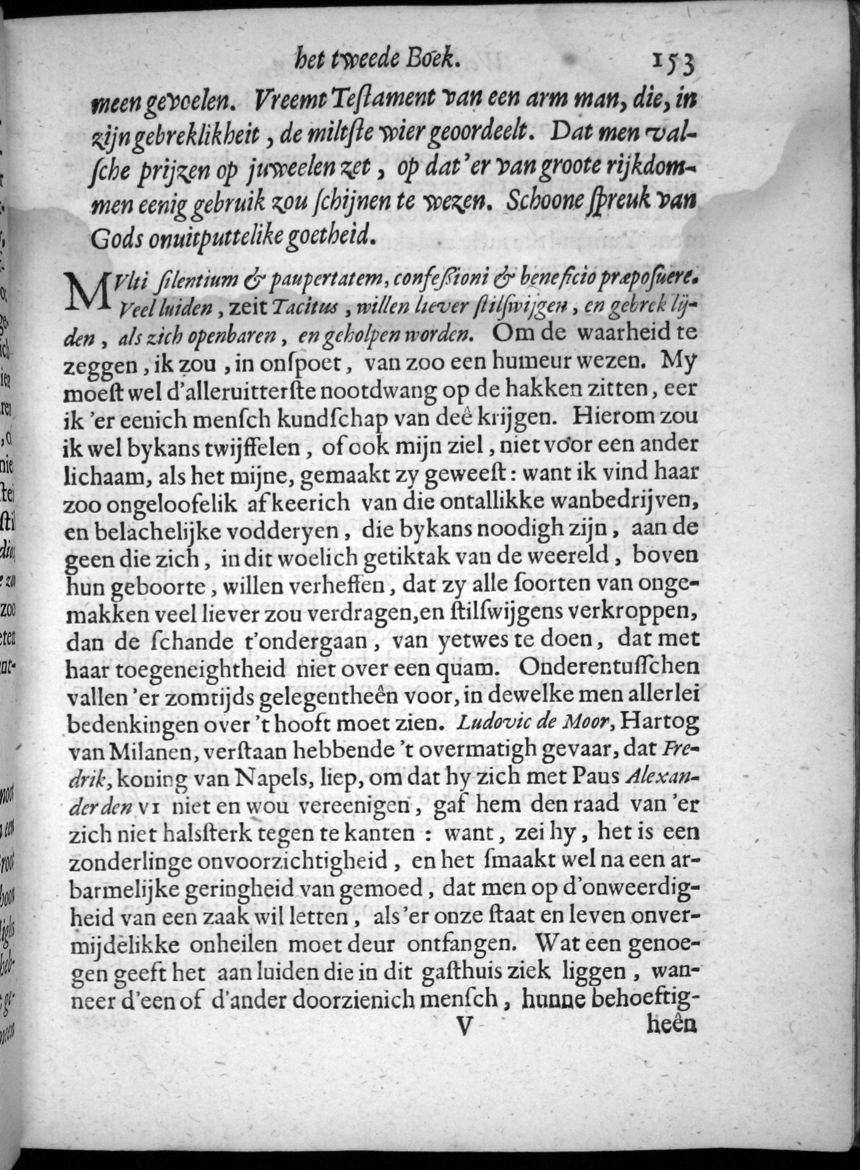 het tweede Boek. 153
meen gevoelen. Vreemt Teſtament van een arm man, die, in
zijn gebreklikheit, de miltſte wier geoordeelt. Dat men val-
ſche prijzen op juweelen zet, op dat'er van groote rijkdom-
men eenig gebruik zou ſchijnen te wezen. Schoone ſpreuk van
Gods onuitputtelike goetheid.
MVlti ſilentium & paupertatem, confeſſioni & beneficio præpoſuere.
Veel luiden, zeit Tacitus, willen liever ſtilſwijgen, en gebrek lij-
den, als zich openbaren, en geholpen worden. Om de waarheid te
zeggen, ik zou, in onſpoet, van zoo een humeur wezen. My
moeſt wel d'alleruitterſte nootdwang op de hakken zitten, eer
ik 'er eenich menſch kundſchap van deê krijgen. Hierom zou
ik wel bykans twijffelen, of ook mijn ziel, niet voor een ander
lichaam, als het mijne, gemaakt zy geweeſt: want ik vind haar
zoo ongeloofelik afkeerich van die ontallikke wanbedrijven,
en belachelijke vodderyen, die bykans noodigh zijn, aan de
geen die zich, in dit woelich getiktak van de weereld, boven
hun geboorte, willen verheffen, dat zy alle ſoorten van onge-
makken veel liever zou verdragen, en ſtilſwijgens verkroppen,
dan de ſchande t'ondergaan, van yetwes te doen, dat met
haar toegeneightheid niet over een quam. Onderentuſſchen
vallen 'er zomtijds gelegentheên voor, in dewelke men allerlei
bedenkingen over 't hooft moet zien. Ludovic de Moor, Hartog
van Milanen, verſtaan hebbende 't overmatigh gevaar, dat Fre-
drik, koning van Napels, liep, om dat hy zich met Paus Alexan-
der den VI niet en wou vereenigen, gaf hem den raad van 'er
zich niet halsſterk tegen te kanten: want, zei hy, het is een
zonderlinge onvoorzichtigheid, en het ſmaakt wel na een ar-
barmelijke geringheid van gemoed, dat men op d'onweerdig-
heid van een zaak wil letten, als'er onze ſtaat en leven onver-
mijdelikke onheilen moet deur ontfangen. Wat een genoe-
gen geeft het aan luiden die in dit gaſthuis ziek liggen, wan-
neer d'een of d'ander doorzienich menſch, hunne behoeftig-
V heên